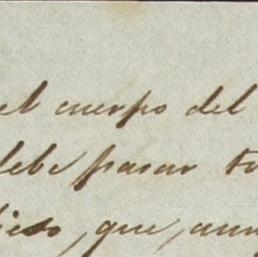 el cuerpo del
debe pasar
que, aun